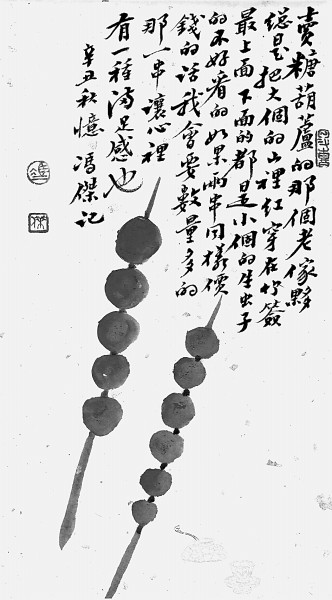 賣糖葫蘆的那個老傢夥
總是把大個的山裡紅穿在竹簽
最上面下面的都是小個的生虫子
的不好看的如果兩串同樣價
錢的話我會要數量多的
那一串讓心裡
有一種滿足感也
辛丑秋憶 馮傑記